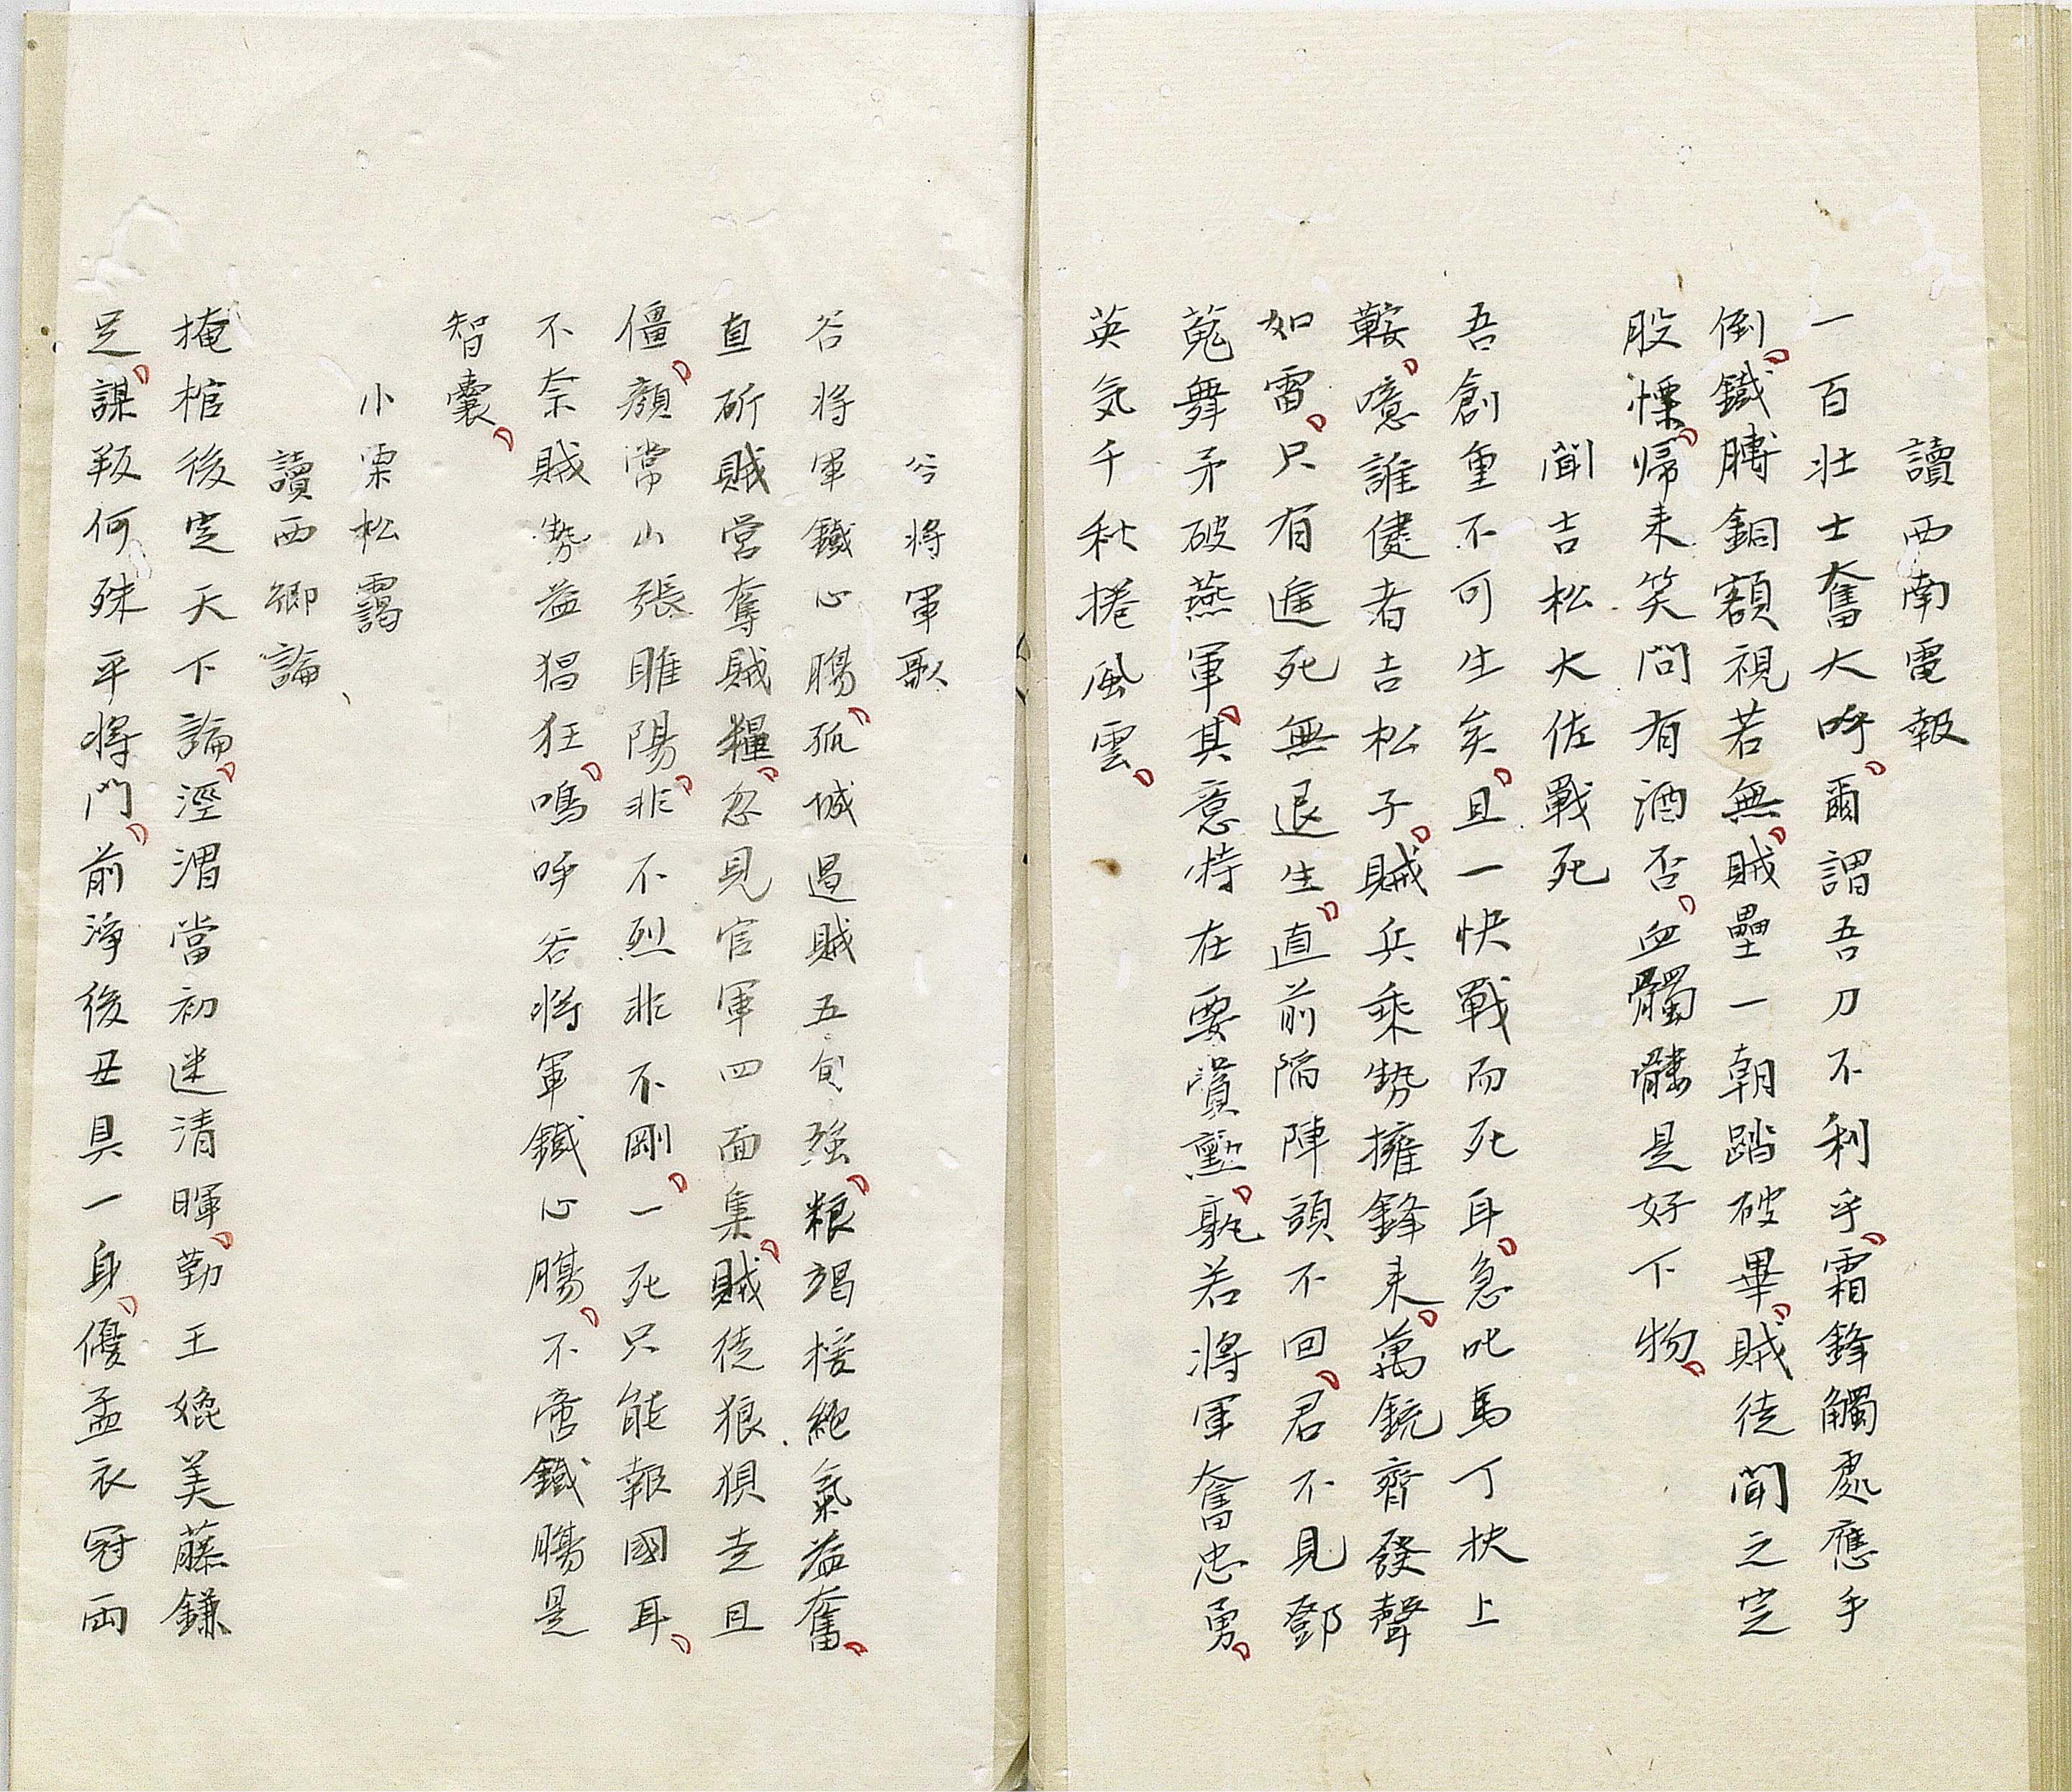 讀西南電報
一百壯士奮大呼爾謂吾刀不利乎霜鋒觸處應手
倒鐵膊銅額視若無賊壘一朝踏破畢賊徒聞之定
股慄歸来笑問有酒否血髑髏是好下物
聞吉松大佐戰死
吾創重不可生矣且一快戰而死耳急叱馬丁扶上
鞍噫誰健者吉松子賊兵乘勢擁鋒来萬銃齊發聲
如雷只有進死無退生直前陷陣頭不回君不見鄧
羗舞矛破燕軍其意特在要賞勲孰若將軍奮忠勇
英気千秋捲風雲
谷将軍歌
谷将軍鐵心腸孤城遏賊五旬强粮竭援絶氣益奮
直斫賊営奪賊糧忽見官軍四面集賊徒狼狽走且
僵顏常山張睢陽非不烈非不剛一死只能報國耳
不奈賊勢益猖狂嗚呼谷将軍鐵心腸不啻鐵腸是
智囊
小栗松靄
讀西郷論
掩棺後定天下論涇渭當初迷清暉勤王媲美藤鎌
足謀叛何殊平将門前淨後丑具一身優孟衣冠両